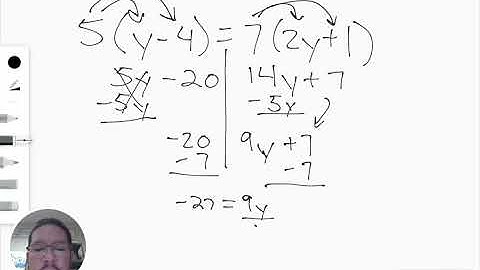 5(y-4) = 7(2y+1)
5y -20 14y+7
-5y -5y
-20 9y+7
-7 -7
-27 = 9y